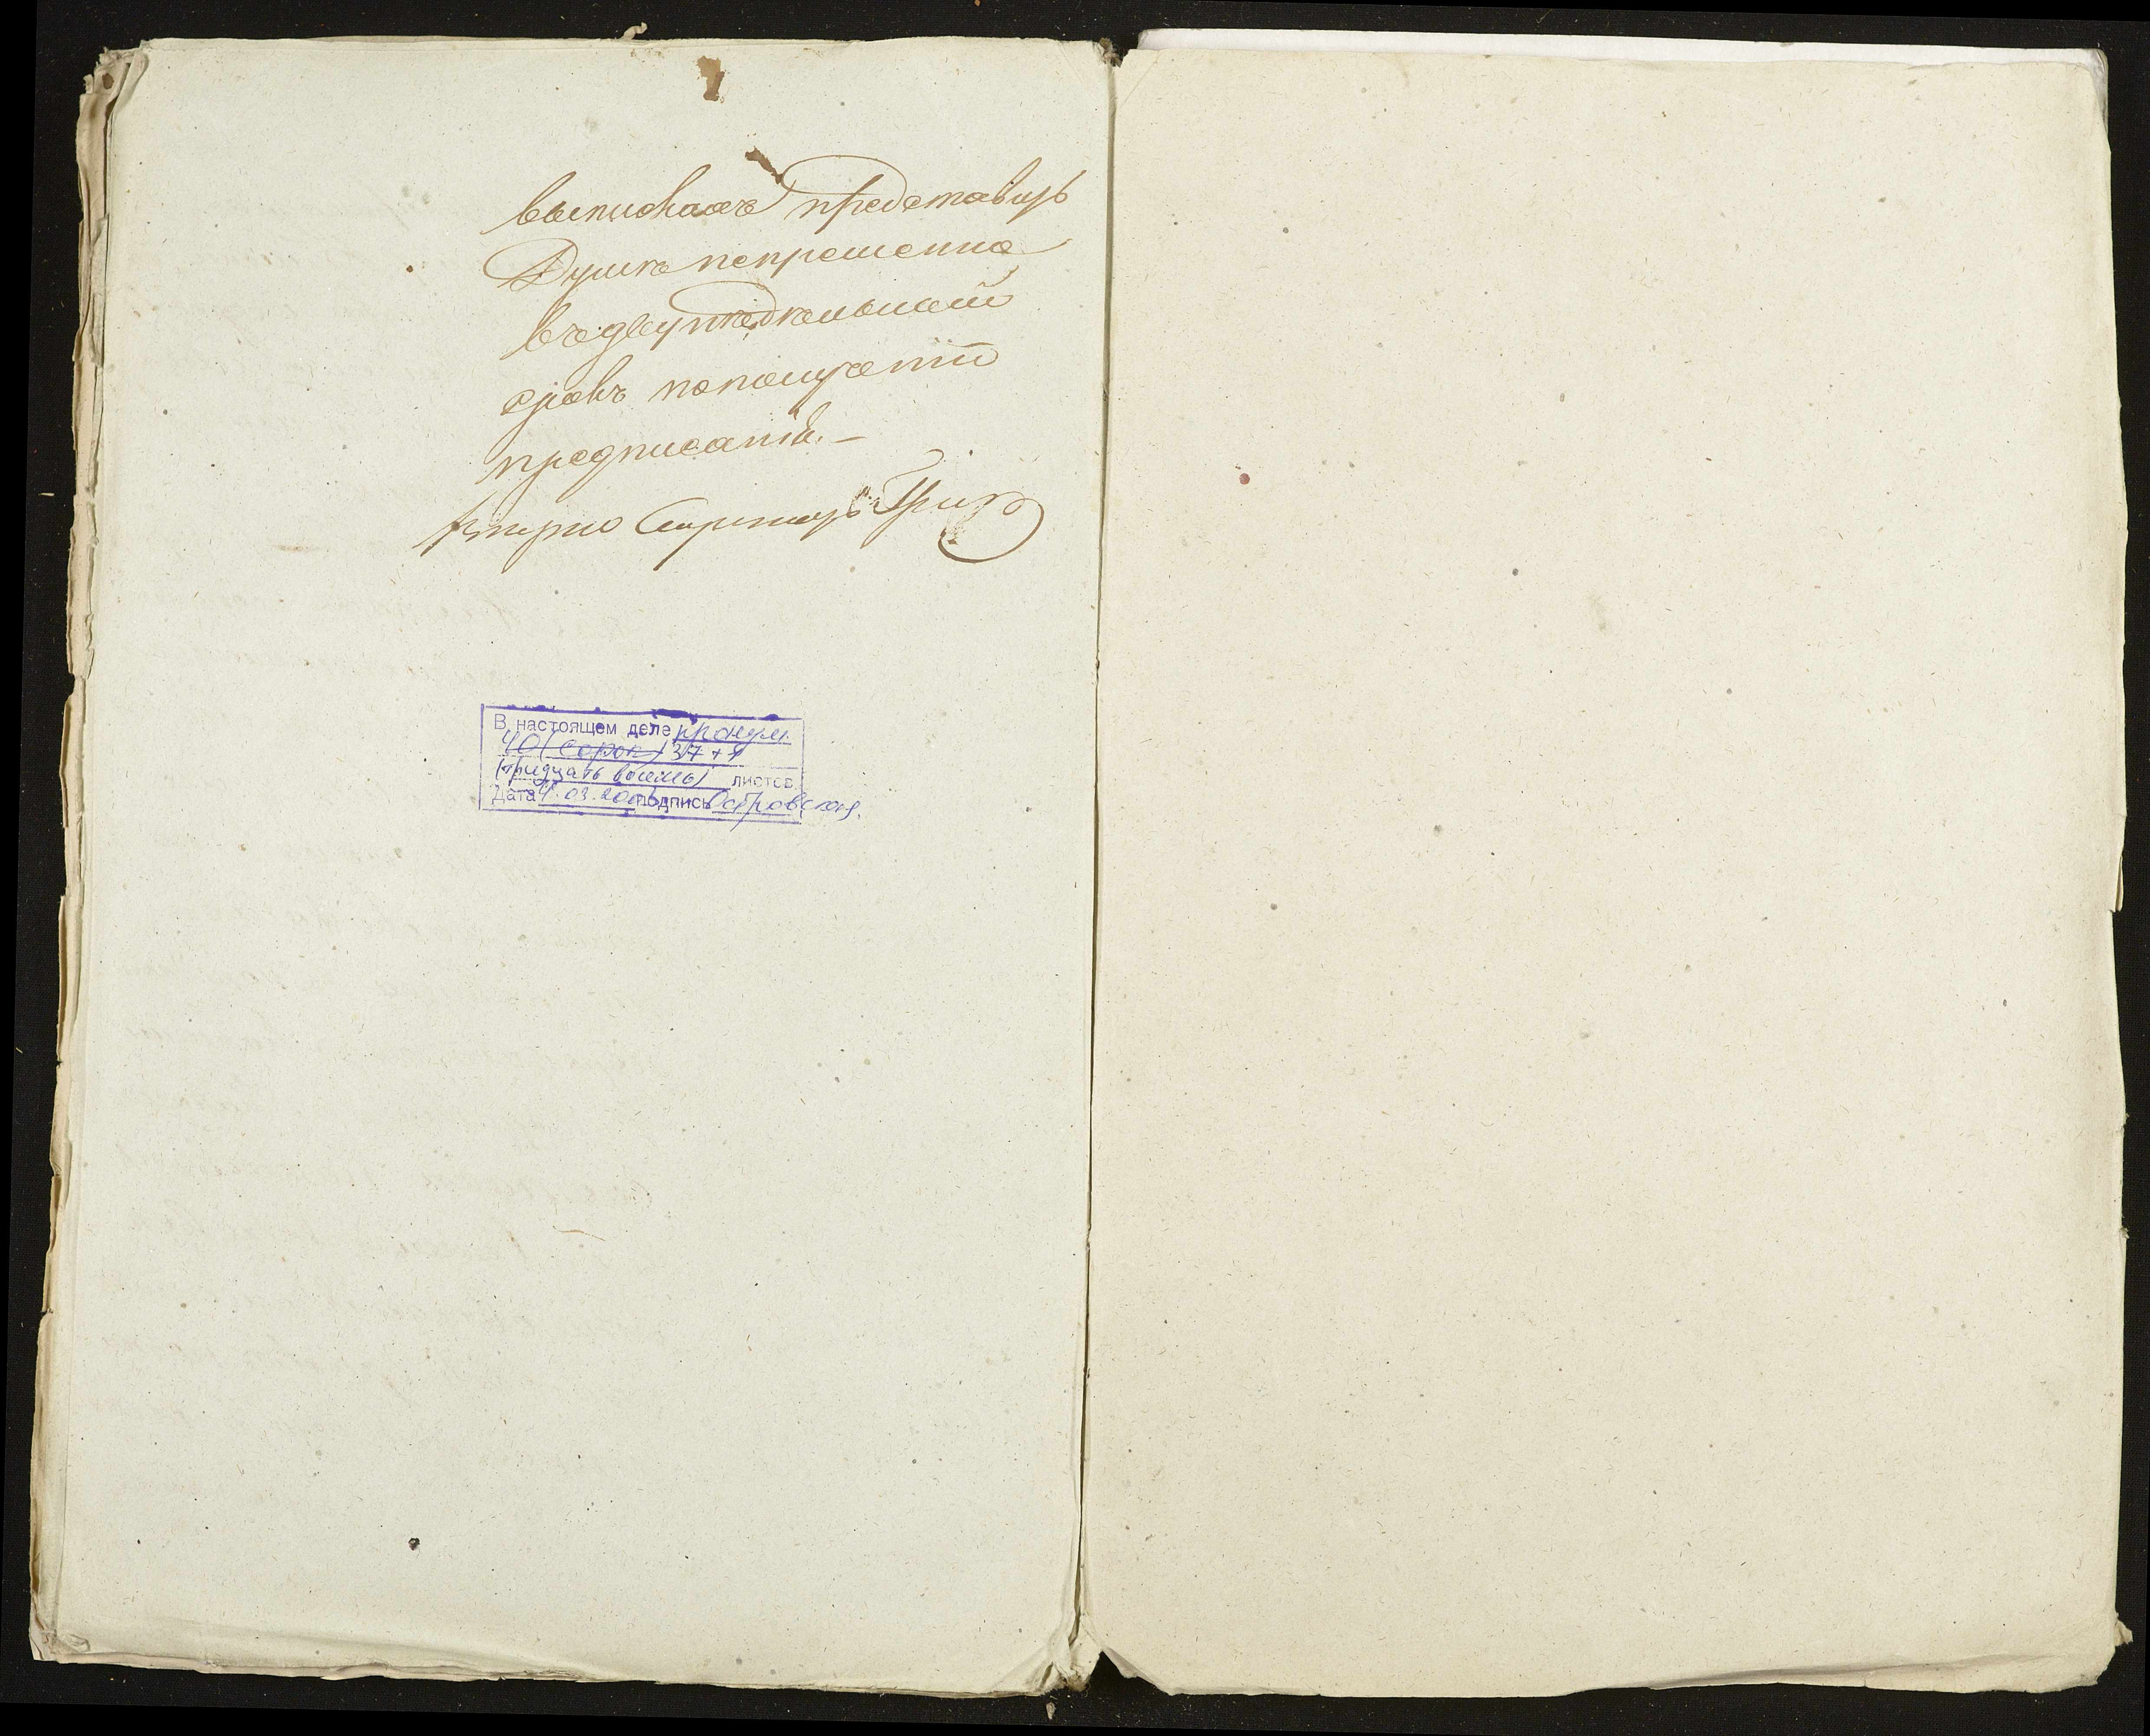 выпискахъ представить
Думѣ непременно
въ двунедельный
срокъ по получении
предписания. —
Секретарь
В настоящем деле пронум.
40 (сорок) 37 + 1
(тридцать восемь) листов.
Дата 4.03.2003 подпись Островская.